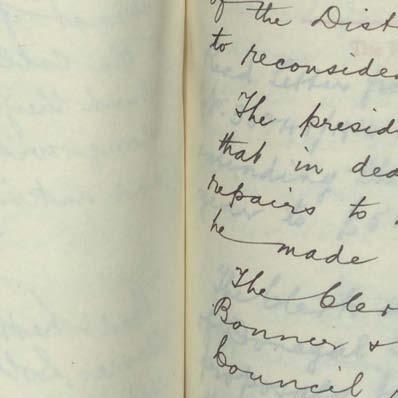 of the Dist
to reconside
The presid
that in dea
repairs to
he made
The cler
Bonner &
Council